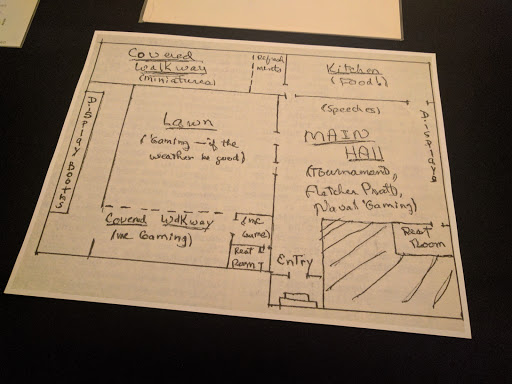 Covered
Walkway
(miniatures)
Refresh
ments
Kitchen
(Food!)
Display Booths
Lawn
(Gaming - if the
weather be good)
(Speeches)
MAIN
HALL
(Tournament,
Fletcher Pratt,
Naval Gaming)
Displays
Covered Walkway
(me Gaming)
(me
Game)
Rest
Room
Entry
Rest
Room